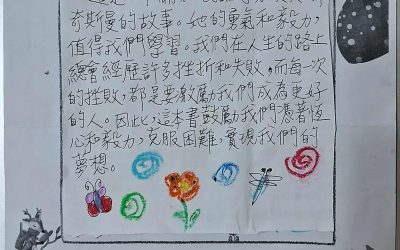 奇斯曼的故事。她的勇氣和毅力,
值得我們學習。我們在人生的路上
總會經歷許多挫折和失敗,而每一次
的挫敗,都是要激勵我們成為更好
的人。因此,這本書鼓勵我們憑著恆
心和毅力,克服困難,實現我們的
夢想。